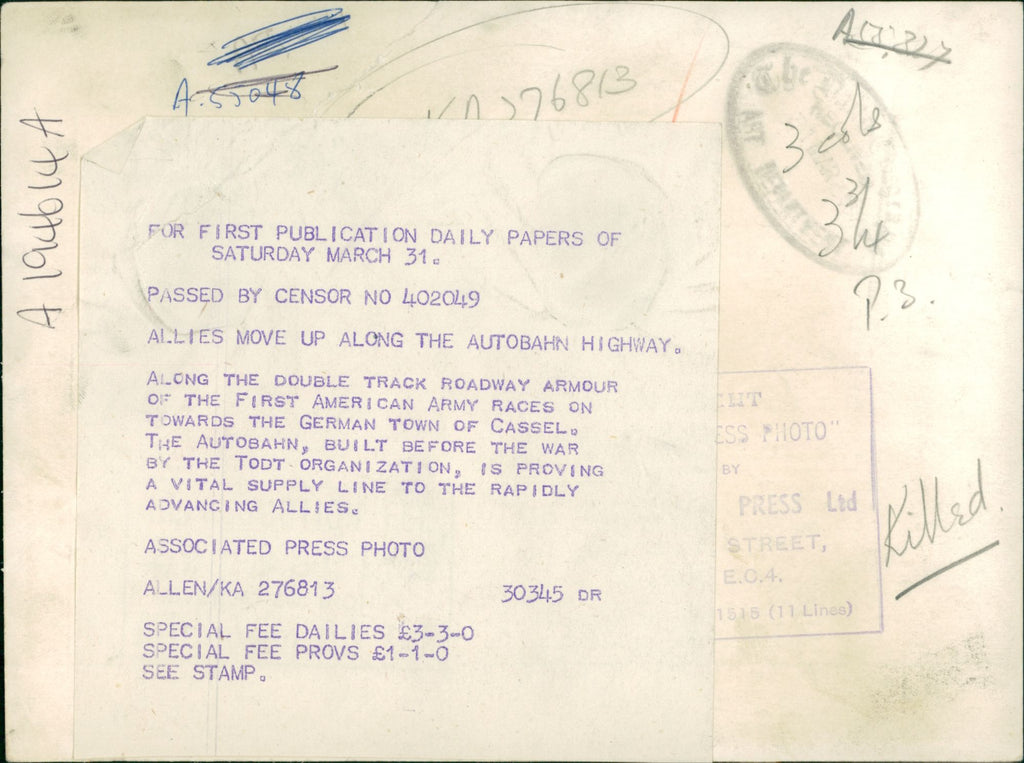 A.55048
KA 276813
A 194614 A
The
ART
3 cols
3 3/4
P.3.
FOR FIRST PUBLICATION DAILY PAPERS OF
SATURDAY MARCH 31.
PASSED BY CENSOR NO 402049
ALLIES MOVE UP ALONG THE AUTOBAHN HIGHWAY.
ALONG THE DOUBLE TRACK ROADWAY ARMOUR
OF THE FIRST AMERICAN ARMY RACES ON
TOWARDS THE GERMAN TOWN OF CASSEL.
THE AUTOBAHN, BUILT BEFORE THE WAR
BY THE TODT ORGANIZATION, IS PROVING
A VITAL SUPPLY LINE TO THE RAPIDLY
ADVANCING ALLIES.
ASSOCIATED PRESS PHOTO
ALLEN/KA 276813 30345 DR
SPECIAL FEE DAILIES £3-3-0
SPECIAL FEE PROVS £1-1-0
SEE STAMP.
PHOTO"
BY
PRESS Ltd
STREET,
E.C.4.
1515 (11 Lines)
Killed.